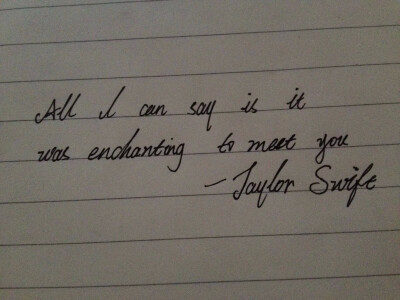 All I can say is it
was enchanting to meet you
—Taylor Swift